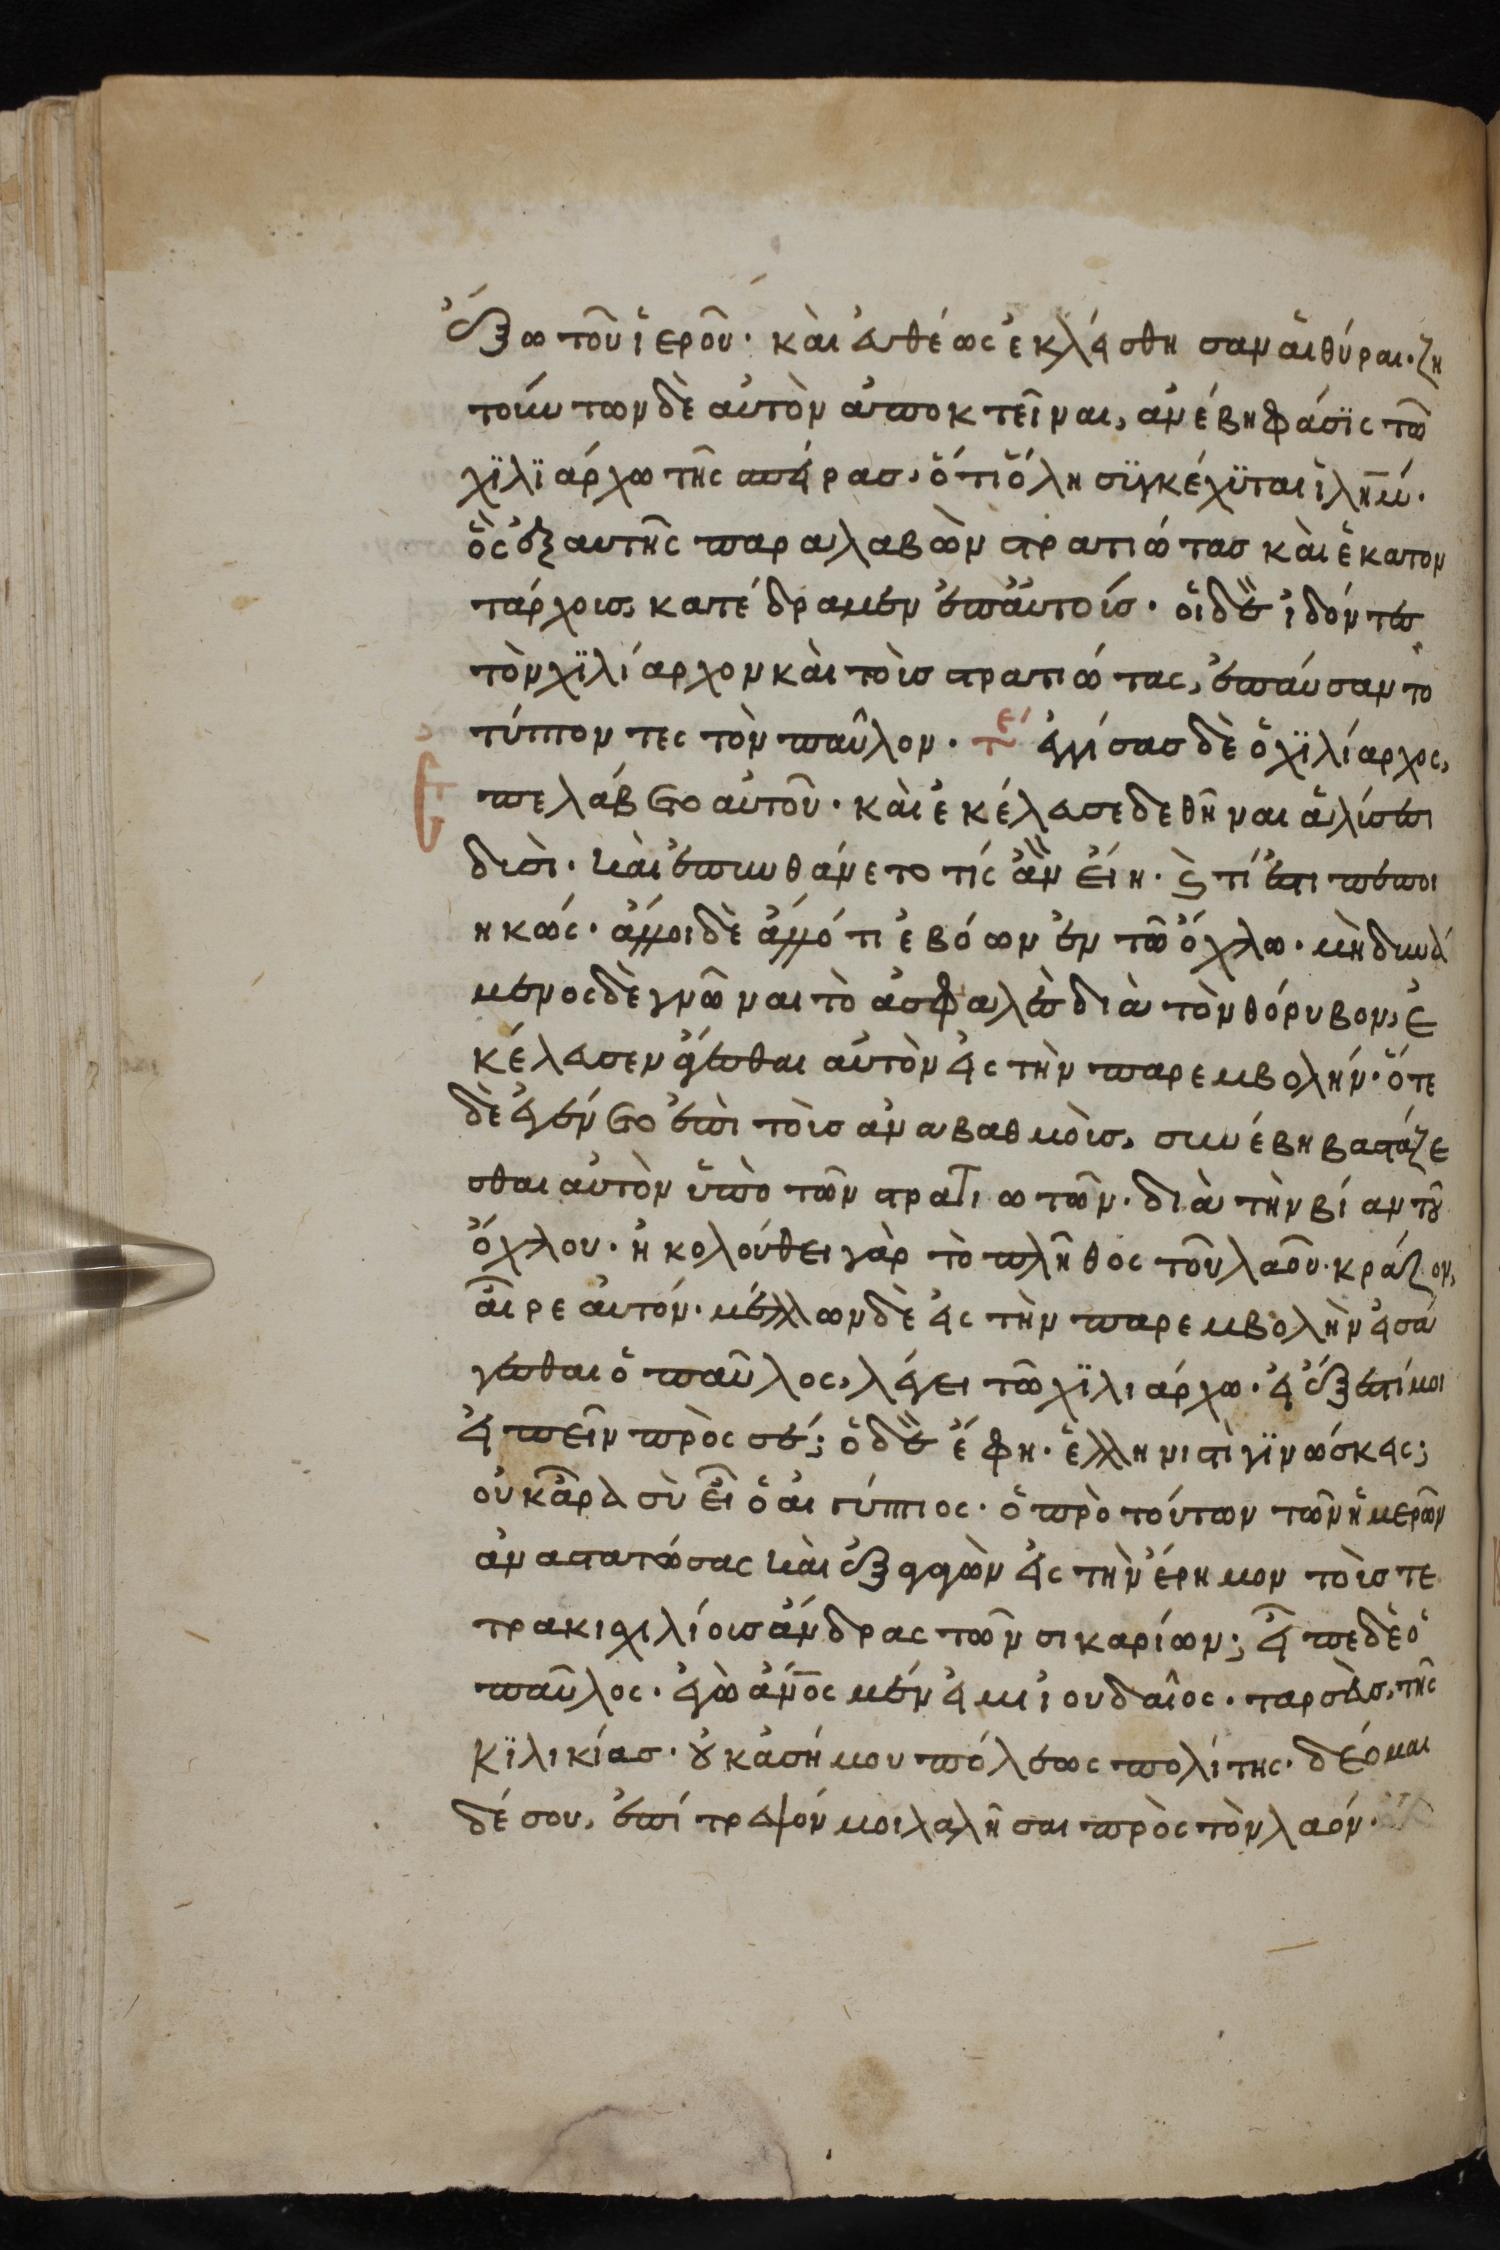 ἔξω τοῦ ἱεροῦ· καὶ εὐθέως ἐκλείσθησαν αἱ θύραι· ζη
τούντων δὲ αὐτὸν ἀποκτεῖναι, ἀνέβη φάσϊς τῶ
χϊλϊάρχω τῆς σπείρας· ὅτι ὅλη σϋγκέχϋται ἱλῆμ·
ὃς ἐξαυτῆς παραλαβὼν στρατιώτας καὶ ἑκατον
τάρχους, κατέδραμεν ἐπ' αὐτούς· οἱ δὲ ἰδόντες
τὸν χϊλίαρχον καὶ τοὺς στρατιώτας, ἐπαύσαντο
τύπτοντες τὸν παῦλον· ἐγγίσας δὲ ὁ χϊλίαρχος,
ἐπελάβετο αὐτοῦ· καὶ ἐκέλευσε δεθῆναι ἁλύσεσι
δυσὶ· καὶ ἐπυνθάνετο τίς ἂν εἴη· ϛ τί ἐστι πεποι
ηκώς· ἄλλοι δὲ ἄλλό τι ἐβόων ἐν τῶ ὄχλω· μὴ δυνά
μενος δὲ γνῶναι τὸ ἀσφαλὲς διὰ τὸν θόρυβον, ἐ
κέλευσεν ἄγεσθαι αὐτὸν εἰς τὴν παρεμβολήν· ὅτε
δὲ ἐγένετο ἐπὶ τοὺς ἀναβαθμοὺς, συνέβη βαστάζε
σθαι αὐτὸν ὑπὸ τῶν στρατιωτῶν· διὰ τὴν βίαν τοῦ
ὄχλου· ἠκολούθει γὰρ τὸ πλῆθος τοῦ λαοῦ· κράζον,
αἶρε αὐτόν· μέλλων δὲ εἰς τὴν παρεμβολὴν εἰσά
γεσθαι ὁ παῦλος, λέγει τῶ χϊλιάρχω· εἰ ἔξεστί μοι
εἰπεῖν πρὸς σέ; ὁ δὲ ἔφη· ἑλληνιστὶ γϊνώσκεις;
οὐκ ἆρα σὺ εἶ ὁ αἰγύπτιος· ὁ πρὸ τούτων τῶν ἡμερῶν
ἀναστατώσας καὶ ἐξαγαγὼν εἰς τὴν ἔρημον τοὺς τε
τρακισχιλίους ἄνδρας τῶν σικαρίων; εἶπε δὲ ὁ
παῦλος· ἐγὼ ἄνος μέν εἰμι ἰουδαῖος· ταρσεὺς, τῆς
κϊλικίας· οὐκ ἀσήμου πόλεως πολίτης· δέομαι
δέ σου, ἐπίτρεψόν μοι λαλῆσαι πρὸς τὸν λαόν·